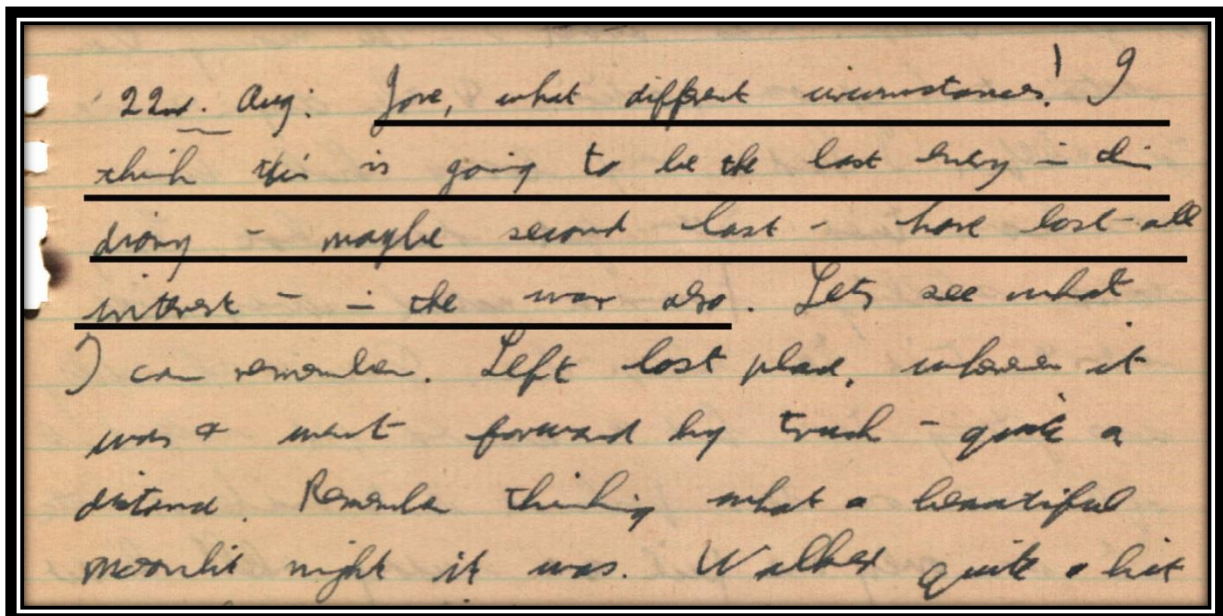 22nd. Aug: Jove, what different circumstances! I
think this is going to be the last entry in this
diary - maybe second last - have lost all
interest - in the war also. Lets see what
I can remember. Left last place, wherever it
was & went forward by truck - quite a
distance. Remember thinking what a beautiful
moonlit night it was. Walked quite a bit